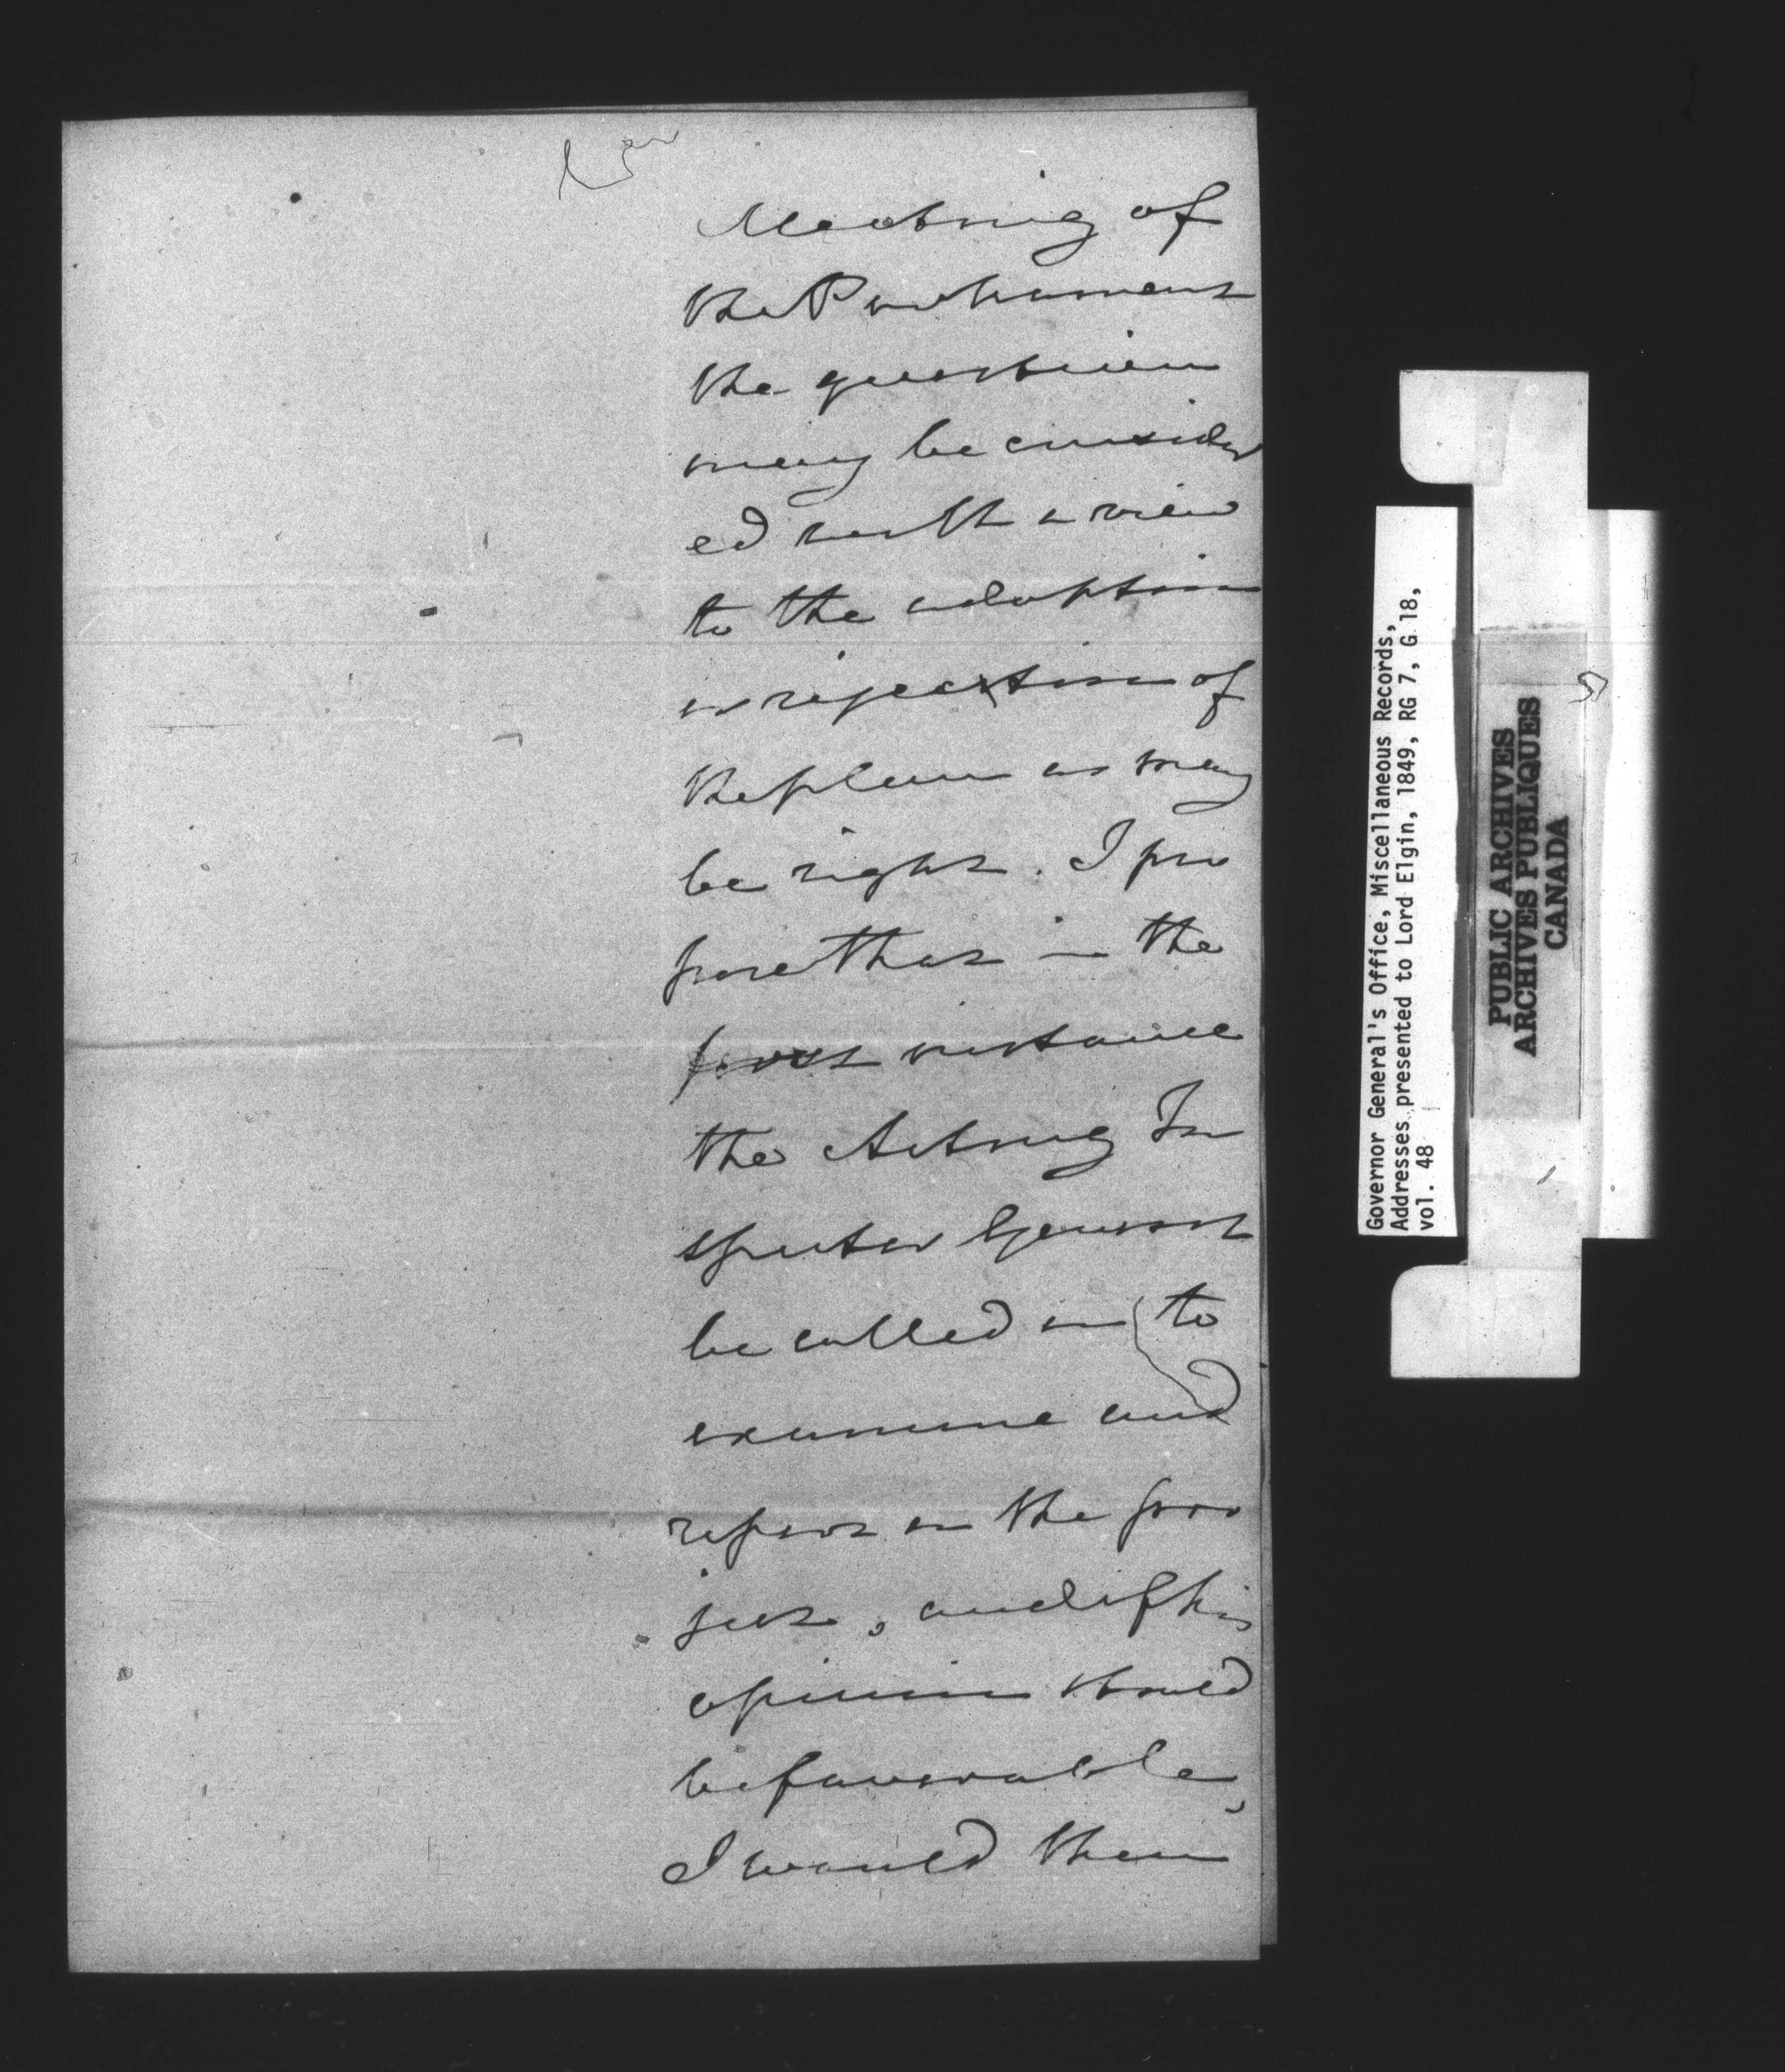 Meeting of
the Parliament
the question
may be consider
ed with a view
to the adoption
or rejection of
the plan as may
be right. I pro
pose that in the
first instance
the Acting In
spector General
be called on to
examine and
report on the pro
ject, and if his
opinion should
be favourable,
I would then
Governor General's Office, Miscellaneous Records,
Addresses presented to Lord Elgin, 1849, RG 7, G 18,
vol. 48
PUBLIC ARCHIVES
ARCHIVES PUBLIQUES
CANADA